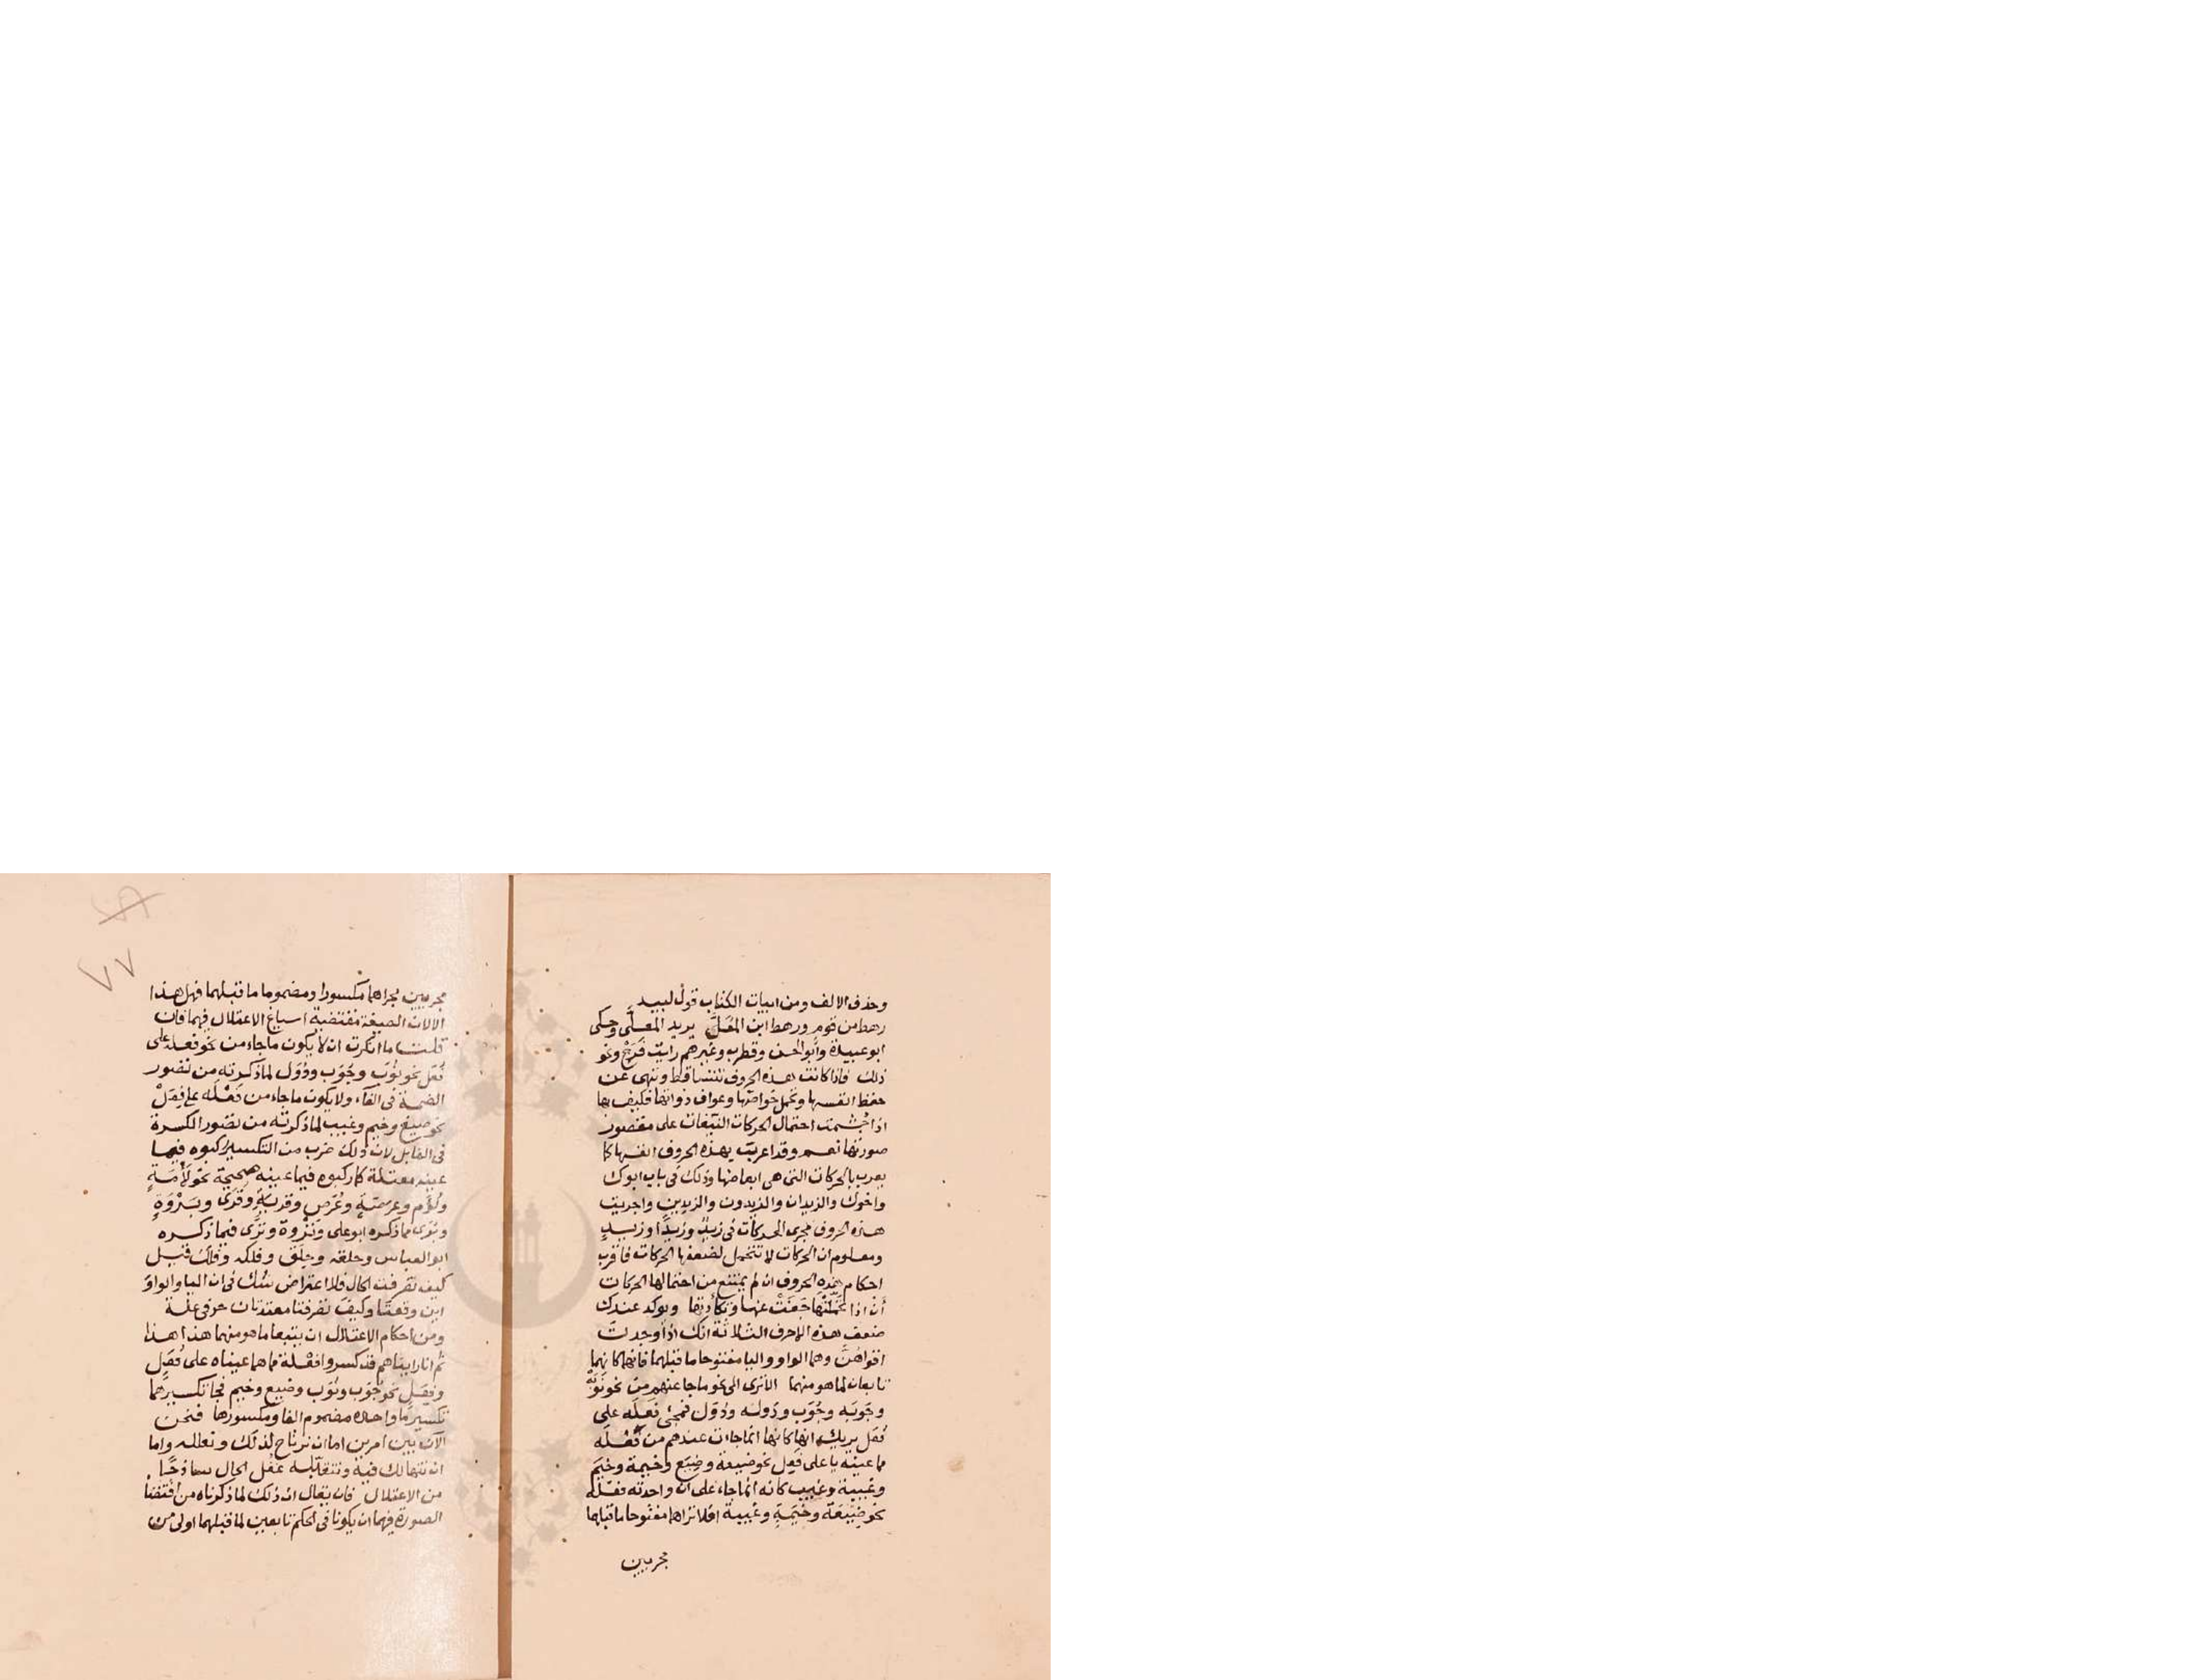 وحذف الالف ومن ابيات الكتاب قول لبيد
رهط من قوم ورهط ابن المعَلّ يريد المعلَّى وحكى
ابو عبيدة وابو الحسن وقطرب وغيرهم رايت فَرَجْ ونحو
ذلك فاذا كانت هذه الحروف تتساقط وتهى عن
حفظ انفسها وتحمل خواصّها وعوافى ذواتها فكيف بها
اذا جُشّمت احتمال الحركات النيّفات على مقصور
صورتها نعم وقد اعربت بهذه الحروف انفسها كما
يعرب بالحركات التى هى ابعاضها وذلك فى باب ابوك
واخوك والزيدان والزيدون والزيدين واجريت
هذه الحروف مجرى الحركات فى زيدٌ وزيدًا وزيدٍ
ومعلوم ان الحركات لا تتحمل لضعفها الحركات فاقرب
احكام هذه الحروف ان لم يمتنع من احتمالها الحركات
أن اذا تحمّلتها جَفَتْ عنها وتكأدتها ويوكد عندك
ضعف هذه الاحرف الثلاثة انك اذا وجدت
اقواهنّ وهما الواو واليا مفتوحا ما قبلهما فانهما كانهما
تابعان لما هو منهما الاترى الى نحو ما جا عنهم من نحو نَوْبَة
وجَوبه وجُوَب ودَولة ودُوَل فمجئ فَعلَه على
فُعَل يريك انها كانها انما جاءت عندهم من فُعْلَه
مما عينه يا على فِعَل نحو ضيعة وضِيَع وخيمة وخِيَم
وعَيبة وعِيَب كانه انما جاء على ان واحدته فِعْلَه
نحو ضِيْعَة وخِيْمَة وعِيْبة افلا تراهما مفتوحا ما قبلهما
مجريين
٧٧
مجريين مجراهما مكسورا ومضموما ما قبلهما فهل هذا
الا لان الصيغة مقتضية اسياغ الاعتلال فيهما فان
قلت ما انكرت ان لا يكون ما جاء من نحو فعلة على
فُعَل نحو نُوَب وجُوَب ودُوَل لما ذكرته من تصور
الضمة فى الفاء ولا يكون ما جاء من فَعْلَه على فِعَل
نحو ضِيَع وخِيَم وعِيَب لما ذكرته من تصور الكسرة
فى الفا بل لان ذلك ضرب من التكسير ركبوه فيما
عينه معتلة كما ركبوه فيما عينه صحيحة نحو لَأْمَةٍ
ولُؤَم وعرصةٍ وعُرَص وقريةٍ وقُرًى وبَرْوَةٍ
وبُرًى مما ذكره ابو على ونَزْوَة ونُزًى فيما ذكره
ابو العباس وحلقه وحِلَق وفلكه وفِلَك قيل
كيف تصرفت الحال فلا اعتراض شك فى ان اليا والواو
اين وقعتا وكيف تصرفتا معتدتان حرفى علة
ومن احكام الاعتلال ان يتبعا ما هو منهما هذا هذا
ثم انا رايناهم قد كسروا فَعْلة مما هما عيناه على فُعَل
وفِعَل نحو جُوَب ونُوَب وضِيَع وخِيَم فجا تكسيرهما
تكسير ما واحده مضموم الفا ومكسورها فنحن
الآن بين امرين اما ان نرتاح لذلك ونعلله واما
ان نتهالك فيه ونتقبّله غُفْل الحال ساذجًا
من الاعتلال فان يقال ان ذلك لما ذكرناه من اقتضا
الصورة فيهما ان يكونا فى الحكم تابعين لما قبلهما اولى من